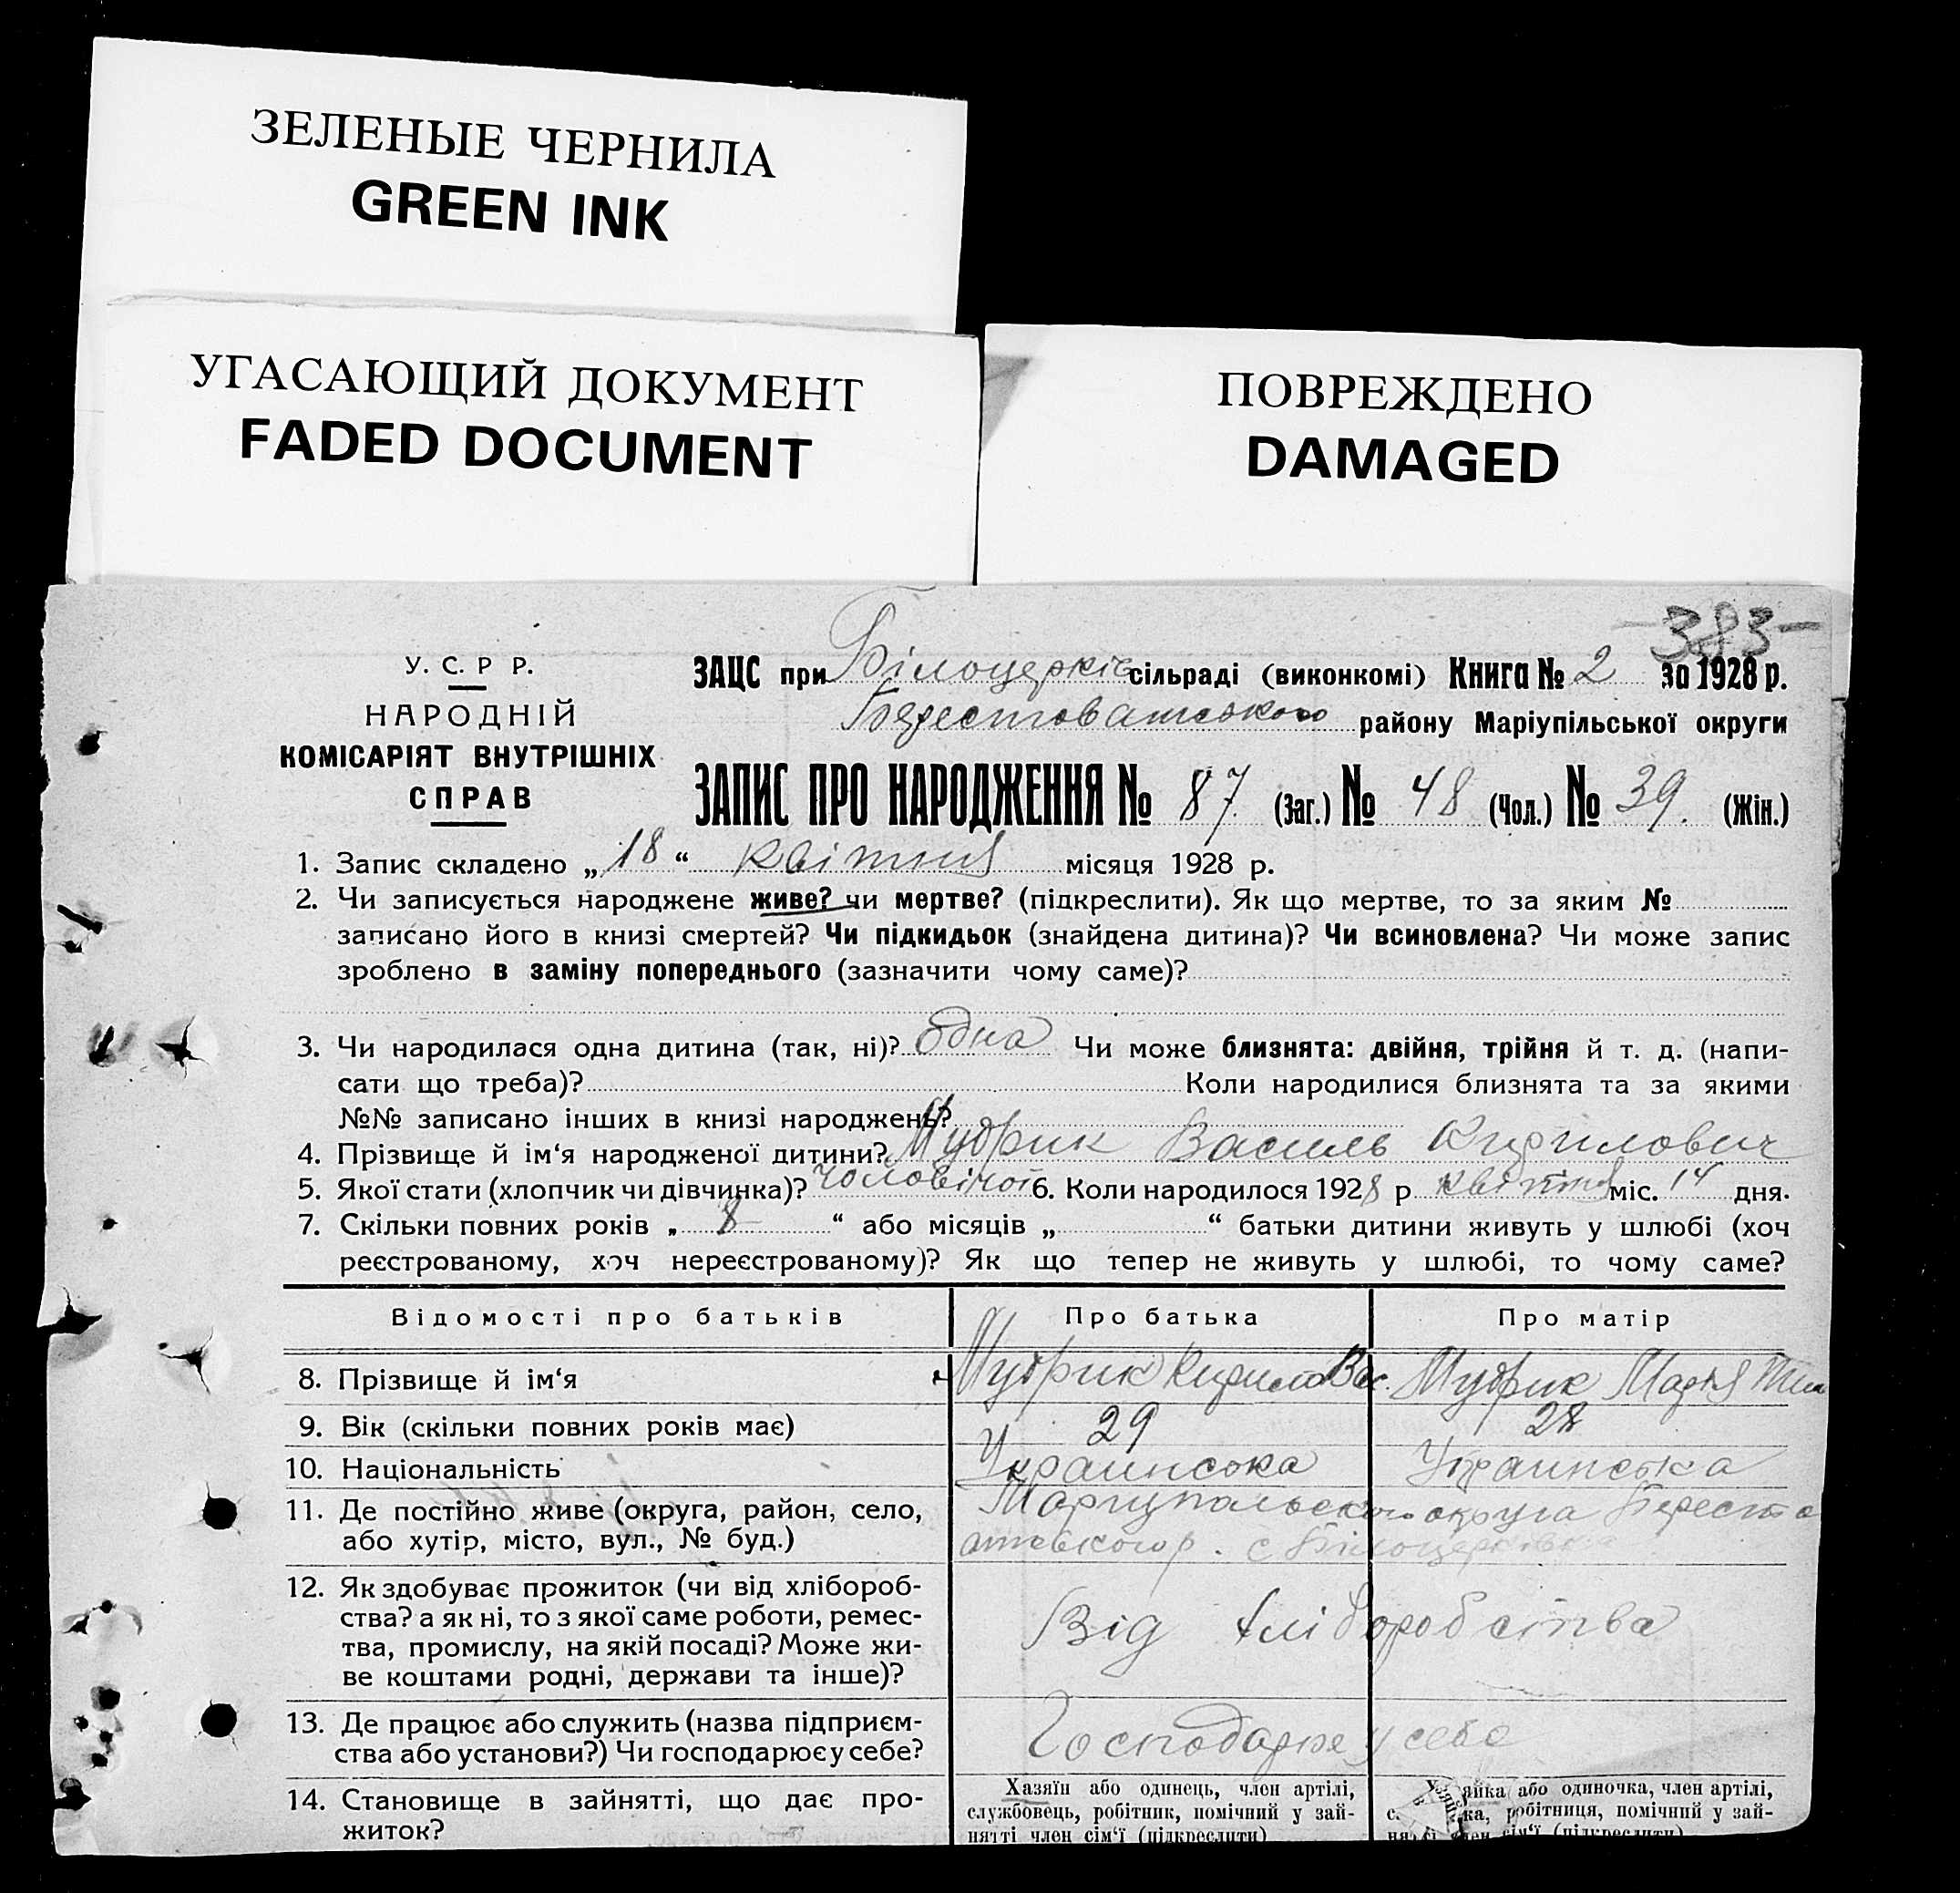 ЗЕЛЕНЫЕ ЧЕРНИЛА
GREEN INK
УГАСАЮЩИЙ ДОКУМЕНТ
FADED DOCUMENT
ПОВРЕЖДЕНО
DAMAGED
-383-
У. С. Р Р.
НАРОДНІЙ
КОМІСАРІЯТ ВНУТРІШНІХ
СПРАВ
ЗАЦС при Білоцерків сільраді (виконкомі) Книга № 2 за 1928 р.
району Маріупільської округи
ЗАПИС ПРО НАРОДЖЕННЯ № 87. (Заг.) № 48 (Чол.) № 39. (Жін.)
1. Запис складено „18“ квітня місяця 1928 р.
2. Чи записується народжене живе? чи мертве? (підкреслити). Як що мертве, то за яким №
записано його в книзі смертей? Чи підкидьок (знайдена дитина)? Чи всиновлена? Чи може запис
зроблено в заміну попереднього (зазначити чому саме)?
3. Чи народилася одна дитина (так, ні)? одна Чи може близнята: двійня, трійня й т. д. (напи-
сати що треба)? Коли народилися близнята та за якими
№№ записано інших в книзі народжень?
4. Прізвище й ім‘я народженої дитини? Мудрик Василь Кирилович
5. Якої стати (хлопчик чи дівчинка)? чоловічої 6. Коли народилося 1928 р квітня міс. 14 дня.
7. Скільки повних років „ 8 “ або місяців „ “ батьки дитини живуть у шлюбі (хоч
реєстрованому, хоч нереєстрованому)? Як що тепер не живуть у шлюбі, то чому саме?
Відомості про батьків
Про батька
Про матір
8. Прізвище й ім‘я
Мудрик Кирило Вас.
Мудрик Марія
9. Вік (скільки повних років має)
29
28
10. Національність
Украинська
Украинська
11. Де постійно живе (округа, район, село,
або хутір, місто, вул., № буд.)
округа
р. с Білоцерківка
12. Як здобуває прожиток (чи від хлібороб-
ства? а як ні, то з якої саме роботи, ремес-
тва, промислу, на якій посаді? Може жи-
ве коштами родні, держави та інше)?
Від хліборобства
13. Де працює або служить (назва підприєм-
ства або установи?) Чи господарює у себе?
Господарює у себе
14. Становище в зайнятті, що дає про-
житок?
Хазяїн або одинець, член артілі,
службовець, робітник, помічний у зай-
нятті член сім‘ї (підкреслити)
або одиночка, член артілі,
робітниця, помічний у зай-
член сім‘ї (підкреслити)